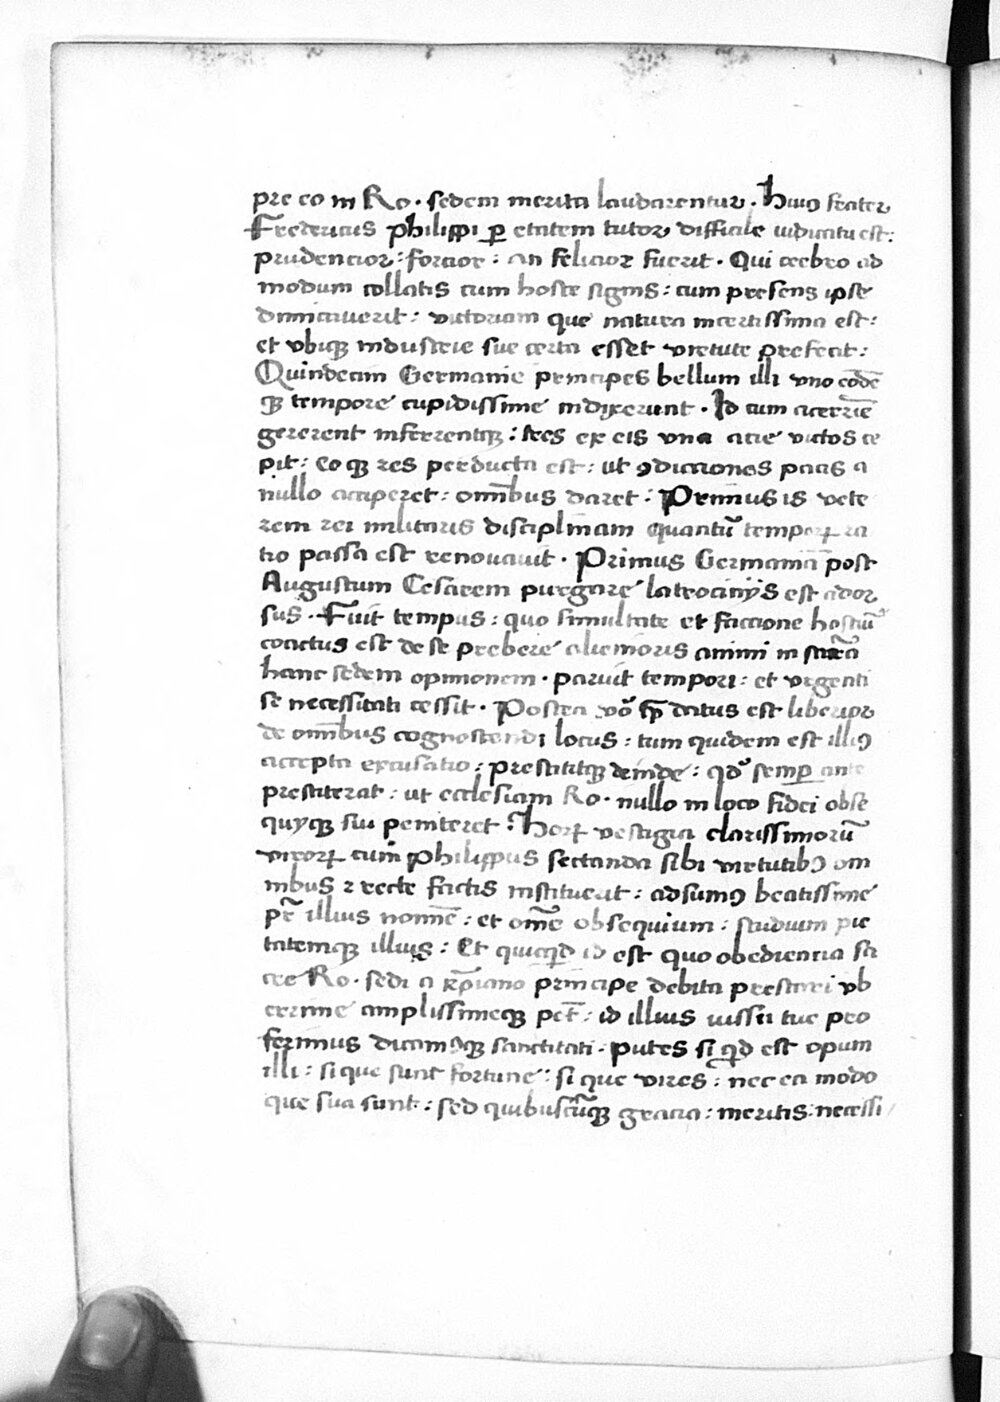 pre eo in Ro. sedem merita laudarentur. Huiꝰ frater
Fredericus philippi ꝑ etatem tutor difficile iudicatu est:
prudencior: forcior: an felicior fuerit. Qui crebro ad
modum collatis cum hoste signis: cum presens ipse
dimicauerit: uictoriam que natura incertissima est:
et vbiqꝫ industrie sue certa esset virtute prefecit:
Quindecim Germanie principes bellum illi vno eodē
qꝫ tempore cupidissime indixerunt. Id cum acerrīe
gererent inferrentqꝫ: tres ex eis vna acie victos ce
pit: Eo qꝫ res perducta est: ut ꝯdiciones pacis a
nullo acciperet: omībus daret: Primus is vete
rem rei militaris disciplinam quantū tempoꝝ ra
tio passa est renouauit. Primus Germaniā post
Augustum Cesarem purgare latrocinijs est ador
sus. Fuit tempus: quo simultate et faccione hostiū
coactus est de se prebere alienioris animi in sacrā
hanc sedem opinionem. paruit tempori: et vrgenti
se necessitati cessit. Postea vō ꝑ datus est liberior
de omībus cognoscendi locus: tum quidem est illiꝰ
accepta excusatio: prestititqꝫ deinde: qđ semꝑ ante
prestiterat: ut ecclesiam Ro. nullo in loco fidei obse
quyqꝫ sui peniteret: Hoꝝ vestigia clarissimorū
viroꝝ cum philippus sectanda sibi virtutibꝰ om
nibus ⁊ recte factis instituerat: adsumꝰ beatissime
pr̄ illius nomīe: et om̄e obsequium: studium pie
tatemqꝫ illius: Et quicqͥd id est quo obediencia sa
cre Ro. sedi a xp̄iano principe debita prestari vb
errime amplissimeqꝫ pōt: id illius iussu tue pro
ferimus dicamꝰqꝫ sanctitati. putes si qͥd est opum
illi: si que sunt fortune: si que vires: nec ea modo
que sua sunt: sed quibuscūqꝫ gracia: meritis: necessi